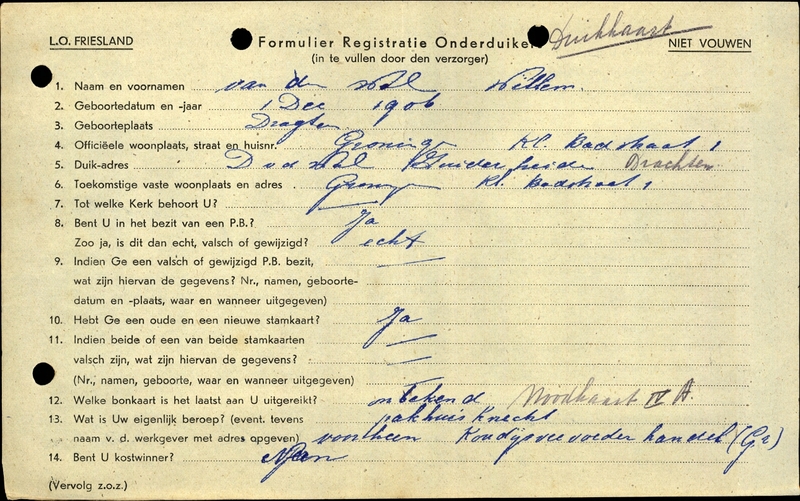 L.O. FRIESLAND
Formulier Registratie Onderduiker Duikkaart
(in te vullen door den verzorger)
NIET VOUWEN
1. Naam en voornamen van der Wal Willem
2. Geboortedatum en -jaar 1 Dec 1906
3. Geboorteplaats Dragten
4. Officiëele woonplaats, straat en huisnr. Groningen Kl. Badstraat 1
5. Duik-adres D v d Wal Zuiderheide Drachten
6. Toekomstige vaste woonplaats en adres Groningen Kl. Badstraat 1
7. Tot welke Kerk behoort U? —
8. Bent U in het bezit van een P.B.? Ja
Zoo ja, is dit dan echt, valsch of gewijzigd? echt
9. Indien Ge een valsch of gewijzigd P.B. bezit, —
wat zijn hiervan de gegevens? Nr., namen, geboorte-
datum en -plaats, waar en wanneer uitgegeven)
10. Hebt Ge een oude en een nieuwe stamkaart? Ja
11. Indien beide of een van beide stamkaarten —
valsch zijn, wat zijn hiervan de gegevens? —
(Nr., namen, geboorte, waar en wanneer uitgegeven) —
12. Welke bonkaart is het laatst aan U uitgereikt? onbekend Noodkaart IV A.
13. Wat is Uw eigenlijk beroep? (event. tevens pakhuis Knecht
naam v. d. werkgever met adres opgeven) voorheen Koudijs veevoeder handel (Gr)
14. Bent U kostwinner? Neen
(Vervolg z.o.z.)